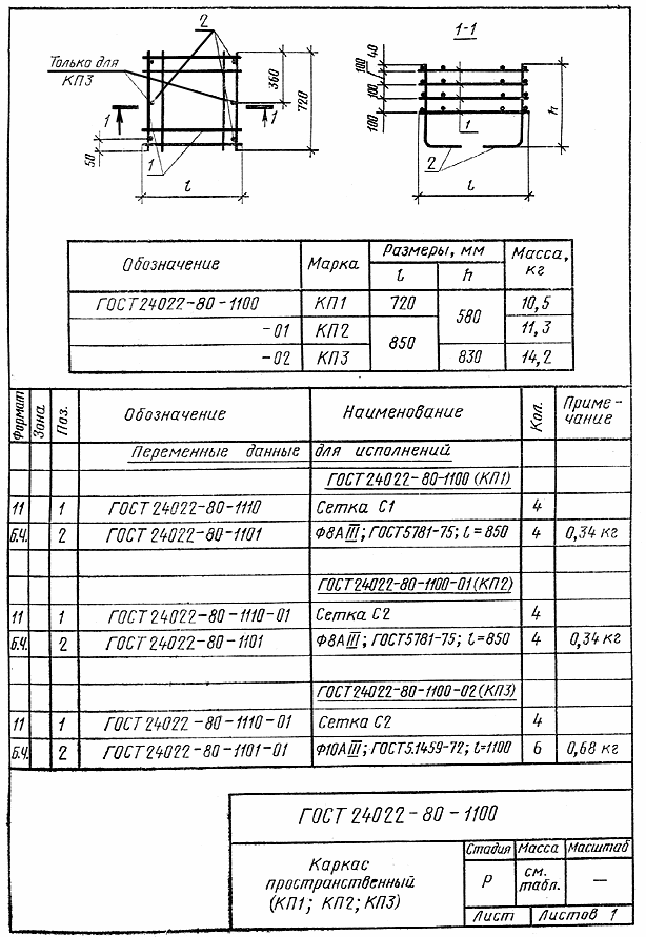 2
1-1
Только для
КПЗ
360
720
1
1
1
50
l
100
40
100
100
1
h
2
l
Обозначение
Марка
Размеры, мм
Масса,
кг
l
h
ГОСТ 24022-80-1100
КП1
720
580
10,5
-01
КП2
850
11,3
-02
КП3
830
14,2
Формат
Зона
Поз.
Обозначение
Наименование
Кол.
Приме-
чание
Переменные данные для исполнений
ГОСТ 24022-80-1100 (КП1)
11 1 ГОСТ 24022-80-1110 Сетка С1 4
Б.Ч. 2 ГОСТ 24022-80-1101 Ф8АIII; ГОСТ5781-75; l=850 4 0,34 кг
ГОСТ24022-80-1100-01.(КП2)
11 1 ГОСТ 24022-80-1110-01 Сетка С2 4
Б.Ч. 2 ГОСТ 24022-80-1101 Ф8АIII; ГОСТ5781-75; l=850 4 0,34 кг
ГОСТ24022-80-1100-02(КП3)
11 1 ГОСТ 24022-80-1110-01 Сетка С2 4
Б.Ч. 2 ГОСТ 24022-80-1101-01 Ф10АIII; ГОСТ5.1459-72; l=1100 6 0,68 кг
ГОСТ 24022-80-1100
Каркас
пространственный
(КП1; КП2; КП3)
Стадия Масса Масштаб
Р
см.
табл.
—
Лист
Листов 1